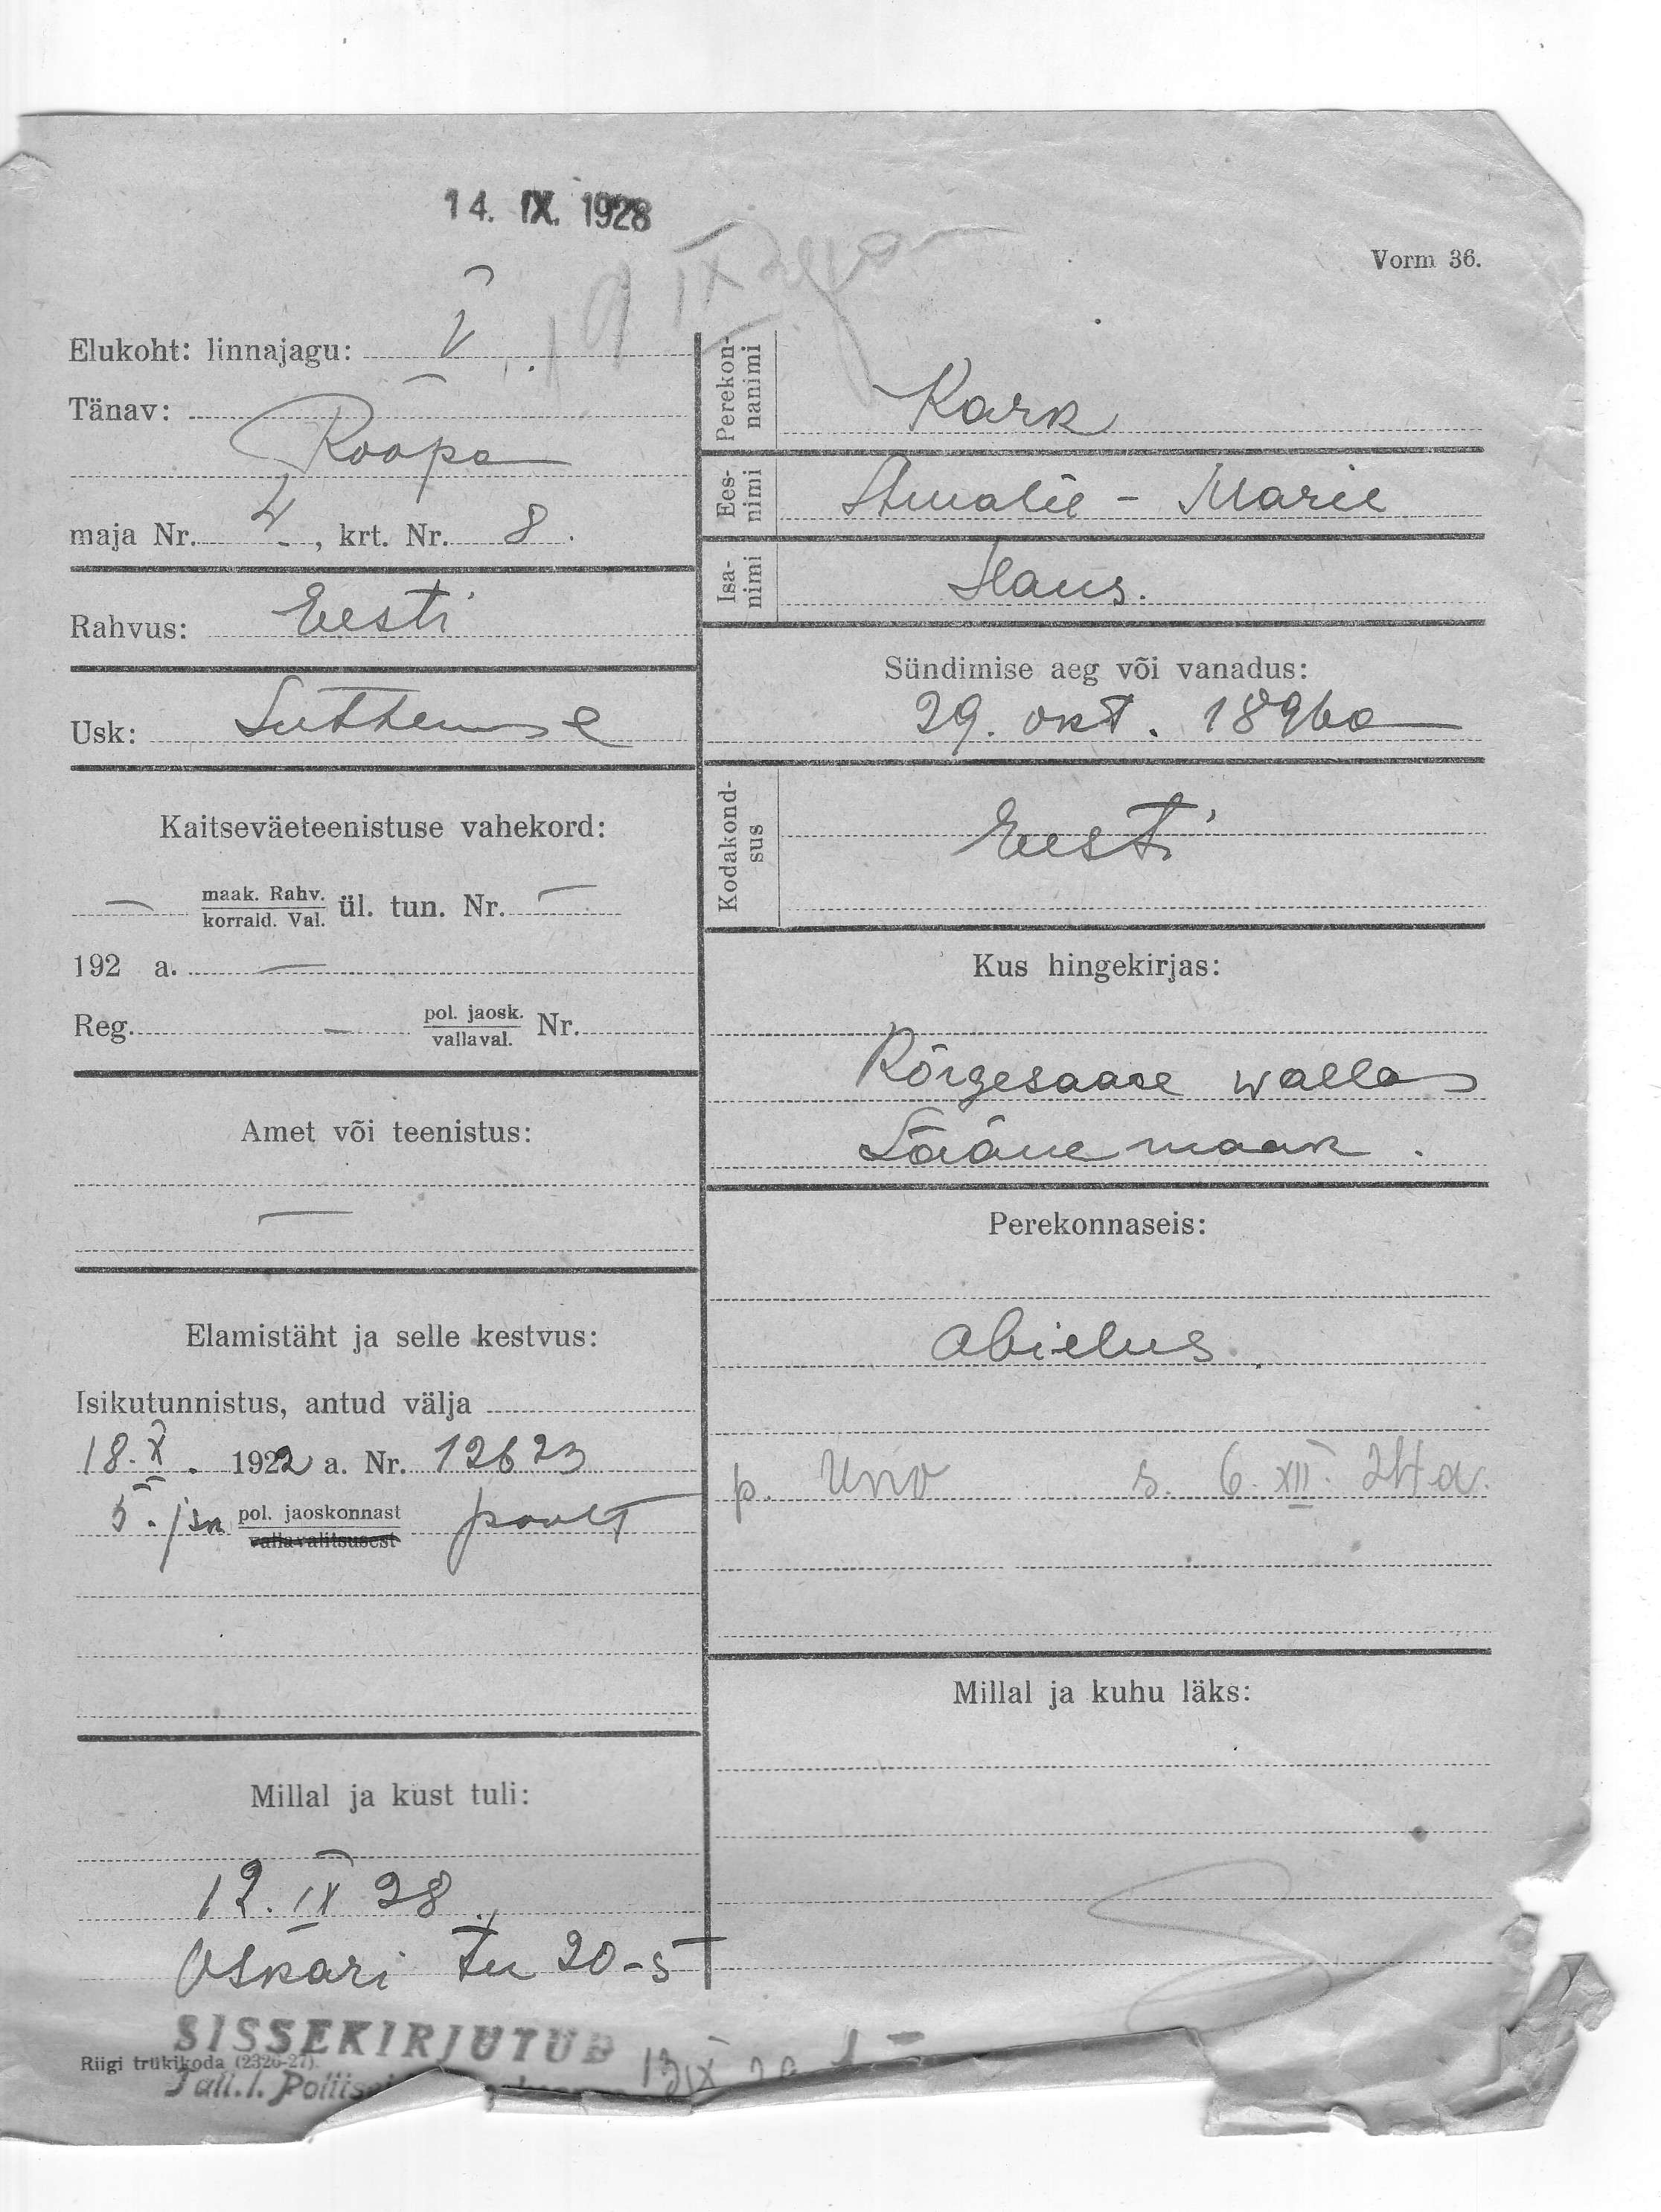 14. IX. 1928
Vorm 36.
Elukoht: linnajagu: V.
Tänav:
Roopa
maja Nr. 4, krt. Nr. 8.
Rahvus: Eesti
Usk: Lutheruse
Kaitseväeteenistuse vahekord:
— maak. Rahv. korrald. Val. ül. tun. Nr. —
192 a. —
Reg. — pol. jaosk. vallaval. Nr.
Amet või teenistus:
—
Elamistäht ja selle kestvus:
Isikutunnistus, antud välja
18. X. 1922 a. Nr. 12623
5. jsk pol. jaoskonnast vallavalitsusest poolt
Millal ja kust tuli:
12. IX 28.
Oskari tn 20-5
SISSEKIRJUTUD
Riigi trükikoda (2326-27).
Tall. 1. Politsei
13 IX
Perekonnanimi Kark
Eesnimi Amalie - Marie
Isanimi Hans.
Sündimise aeg või vanadus:
29. okt. 1896a
Kodakondsus Eesti
Kus hingekirjas:
Kõrgesaare wallas
Läänemaak.
Perekonnaseis:
abielus.
p. Uno s. 6. XII. 24 a.
Millal ja kuhu läks: